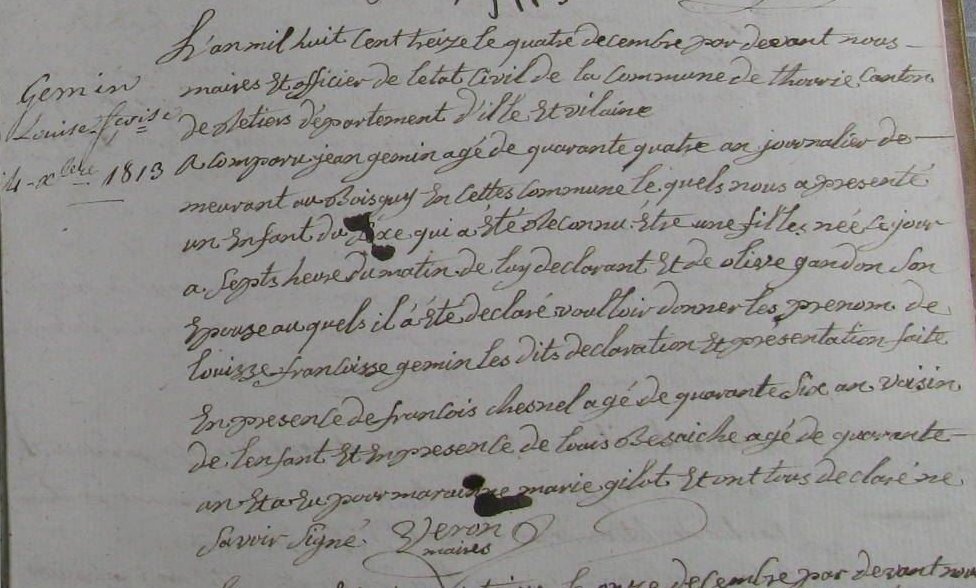 L'an mil huit cent treize le quatre decembre par devant nous
maires Et officier de letat Civil de la Commune de thourie Canton
de Retiers département d'ille Et vilaine
Gemin
Louise fcoise
4 xbre 1813
A Comparu jean gemin agé de quarante quatre an journalier de
meurant au Boisguy En cettes Commune le quels nous a presenté
un Enfant du sixe qui a Eté Reconnu Étre une fille, née ce jour
a septs heure du matin de luy declarant Et de olive gandon son
Epouse au quels il á Été declaré voulloir donner les prenom de
louizze francoisse gemin les dits declaration Et presentation faite
En presence de francois chesnel agé de quarante six an voisin
de l'enfant Et En presence de louis agé de quarante
an Et a Eu pour marainne marie gilot Et ont tous declaré ne
savoir signé. Veron
maires
decembre par devant nous